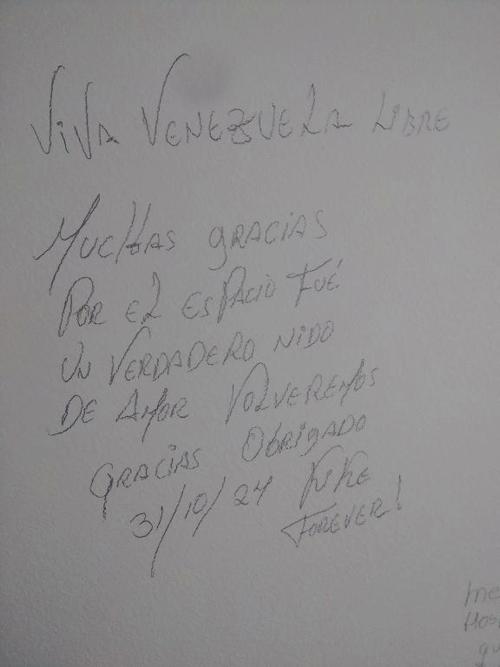 VIVA VENEZUELA LIBRE
MUCHAS GRACIAS
POR EL ESPACIO FUÉ
UN VERDADERO NIDO
DE AMOR VOLVEREMOS
GRACIAS OBRIGADO
31/10/24 KIKE
FOREVER!